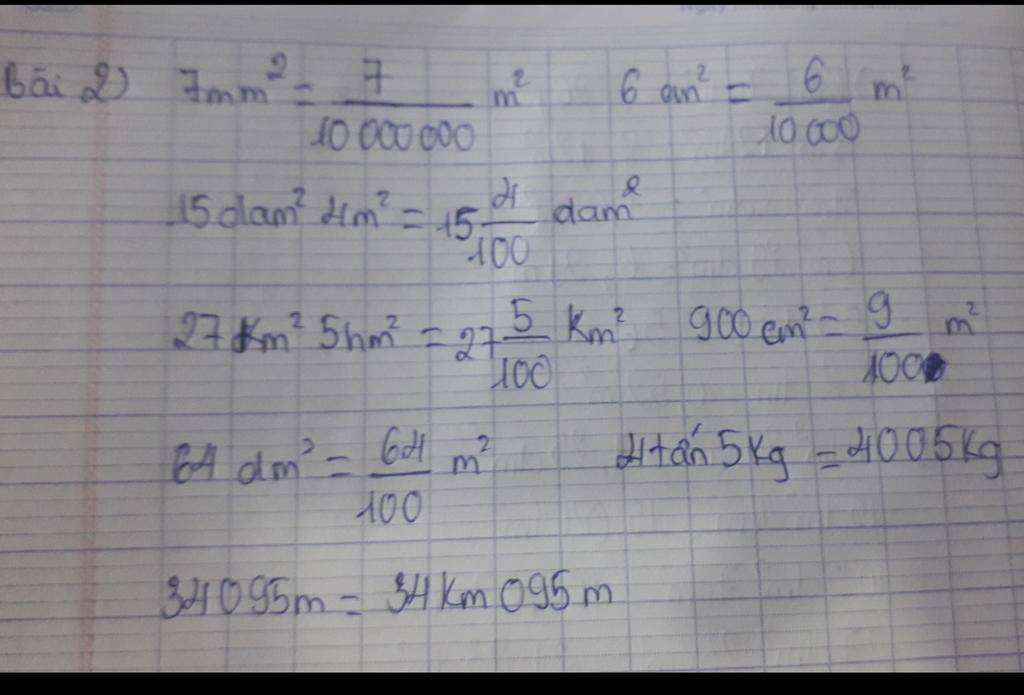 Bài 2) 7mm² = 7/10 000 000 m² 6 cm² = 6/10 000 m²
15dam² 4m² = 15 4/100 dam²
27 Km² 5hm² = 27 5/100 Km² 900 cm² = 9/100 m²
64 dm² = 64/100 m² 4tấn 5Kg = 4005Kg
34095m = 34Km 095 m